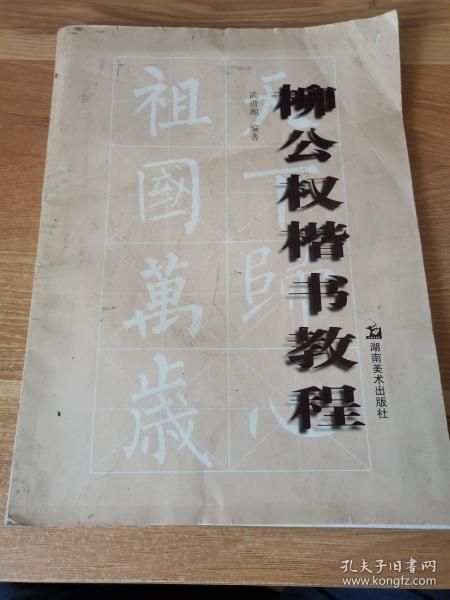 柳公权楷书教程
武道湘 编著
天下歸心
祖國萬歲
湖南美术出版社
孔夫子旧书网
www.kongfz.com